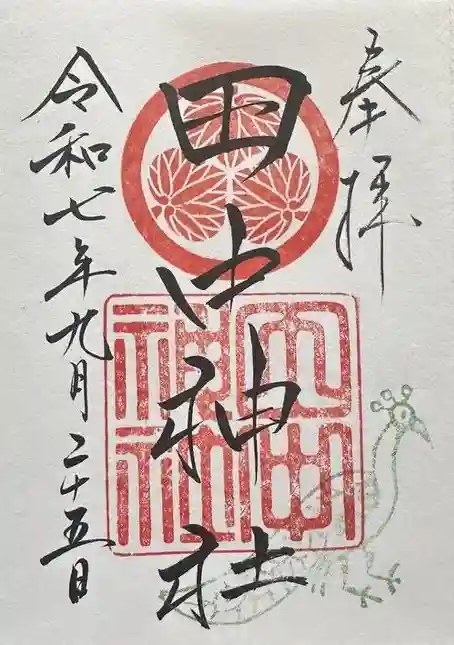 奉拝
田中神社
田中
神社
令和七年九月二十五日